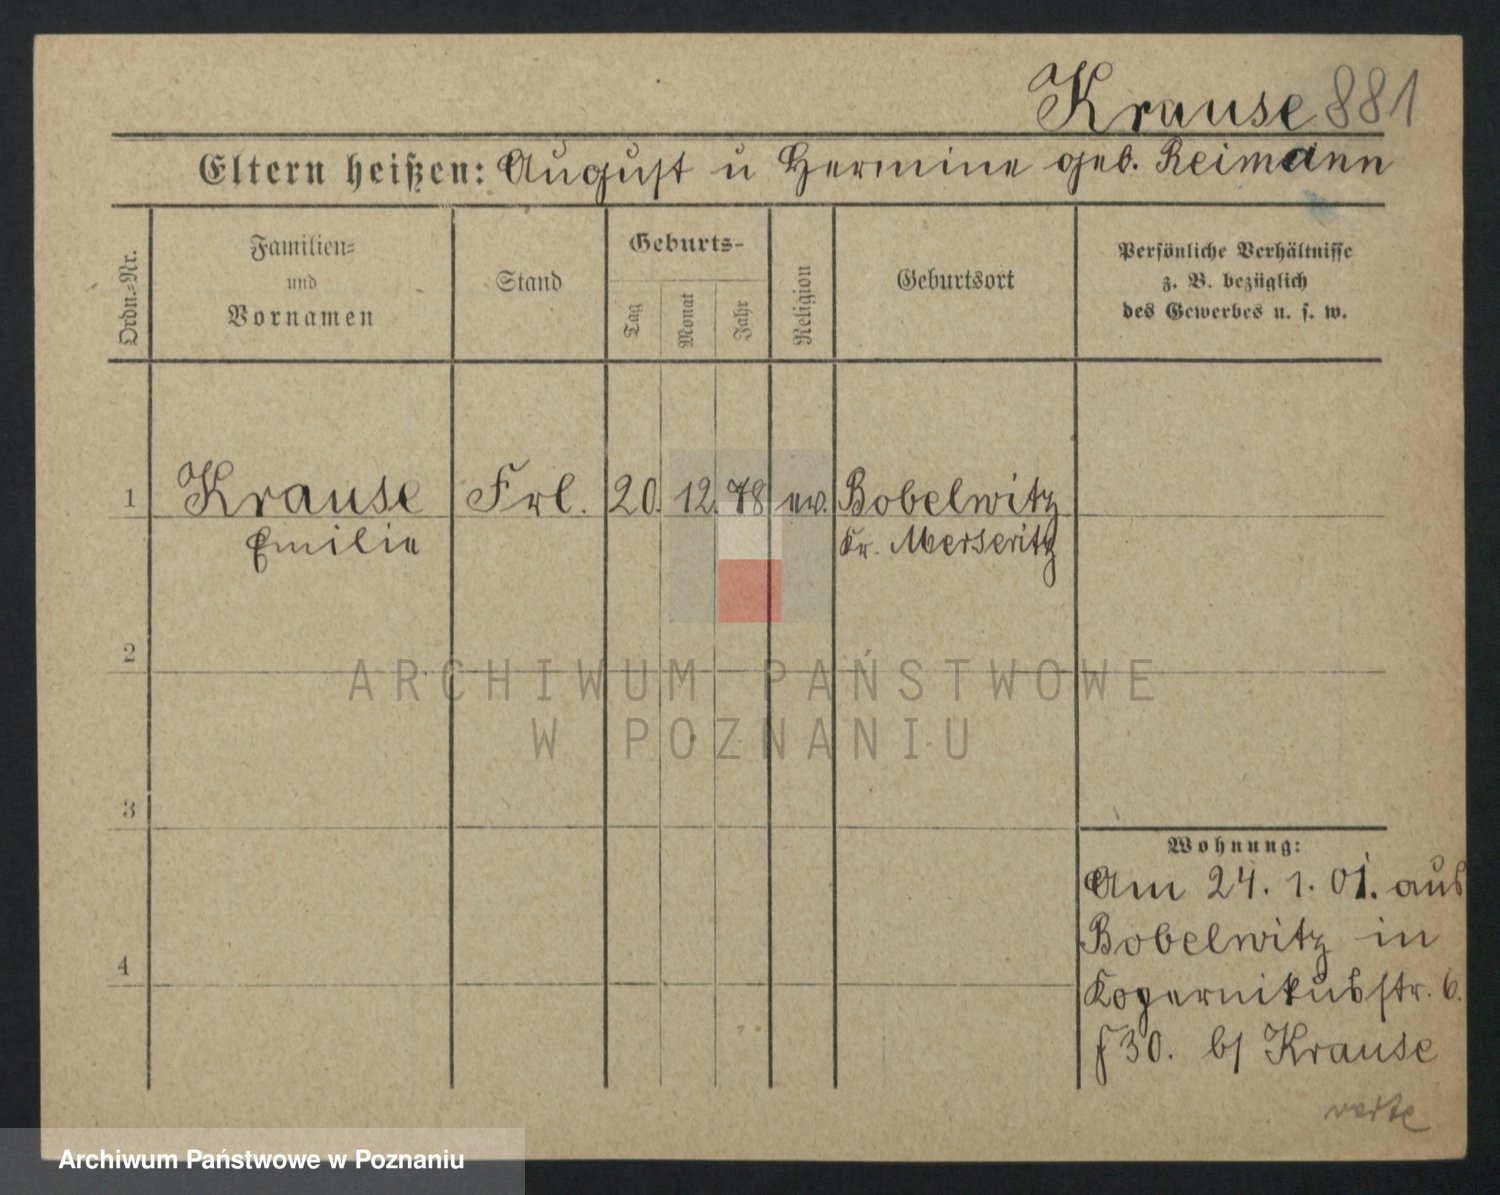 Krause 881
Eltern heißen: August u Hermine geb. Reimann
Ordn.-Nr.
Familien-
und
Vornamen
Stand
Geburts-
Tag
Monat
Jahr
Religion
Geburtsort
Persönliche Verhältnisse
z. B. bezüglich
des Gewerbes u. s. w.
1 Krause Frl. 20. 12. 78 ev. Bobelwitz
Emilie Kr. Meseritz
2
3
4
Wohnung:
Am 24. 1. 01. aus
Bobelwitz in
Kopernikusstr. 6.
f 30. b/ Krause
verte
ARCHIWUM PAŃSTWOWE
W POZNANIU
Archiwum Państwowe w Poznaniu